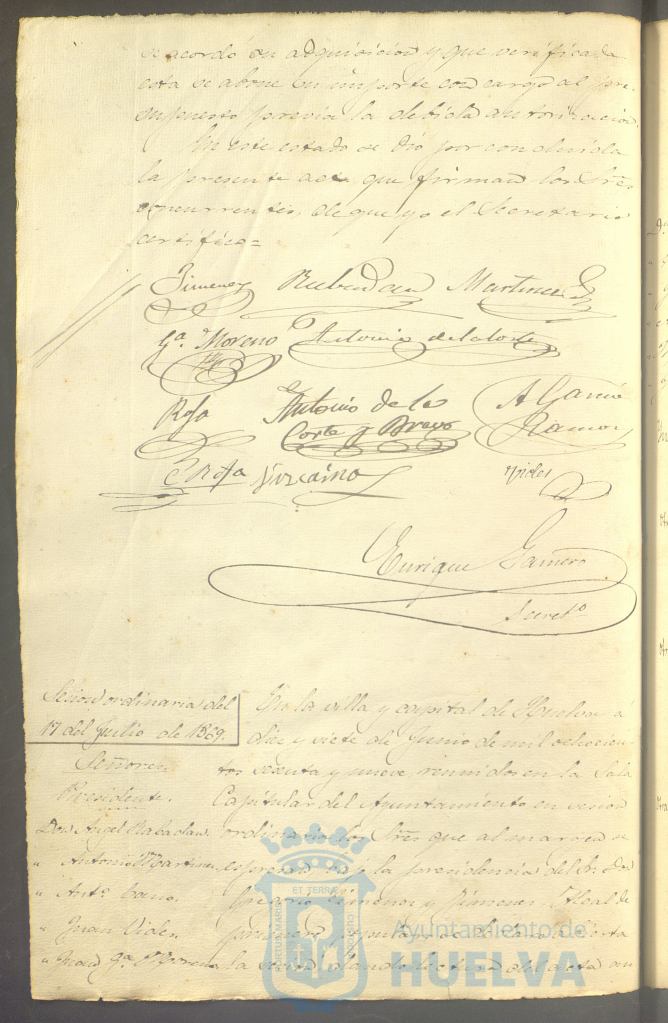 se acordó su adquisicion y que verificada
esta se abone su importe con cargo al pre-
supuesto previa la debida autorizacion.
En este estado se dió por concluida
la presente acta que firman los Sres
concurrentes, de que yo el Secretario
certifico=
Jimenez Rabadan Martinez
Ga. Moreno Antonio de la Corte
Rofa Antonio de la Corte y Bravo A Garcia Ramos
E Rofa Vizcaino Vides
Enrique Gamero
Secreto
Sesion ordinaria del
17 del Julio de 1869.
Señores
Presidente.
Don Angel Rabadan.
" Antonio Martinez
" Anto. Cano.
" Juan Vides.
" Juan Ga. Moreno
En la villa y capital de Huelva á
diez y siete de Junio de mil ochocien-
tos sesenta y nueve reunidos en la Sala
Capitular del Ayuntamiento en sesion
ordinaria los Sres que al margen se
espresan bajo la presidencia del Sr. Don
Gregorio Jimenez y Jimenez Alcalde
primero se declaró abierta
la sesion dando lectura del acta an
Ayuntamiento de
HUELVA